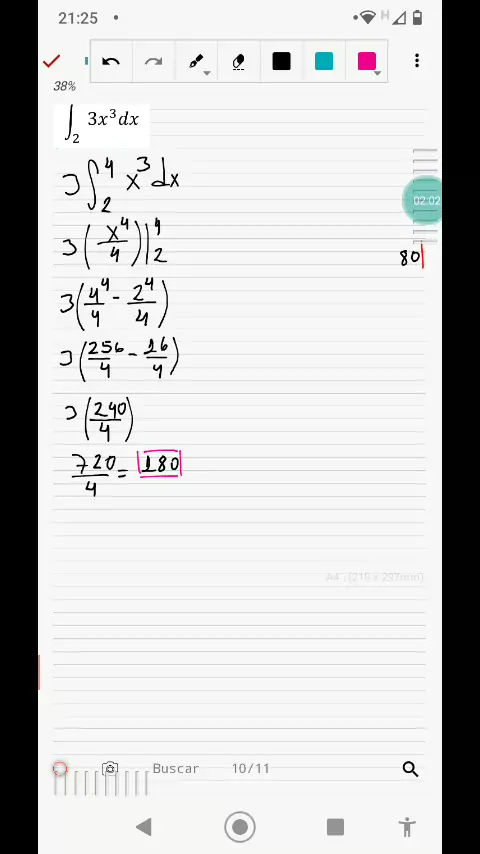 21:25
H
38%
∫₂ 3x³dx
3∫₂⁴ x³dx
02:02
3(x⁴/4)|₂⁴
80
3(4⁴/4 - 2⁴/4)
3(256/4 - 16/4)
3(240/4)
720/4 = 180
A4 : (210 x 297mm)
Buscar 10/11